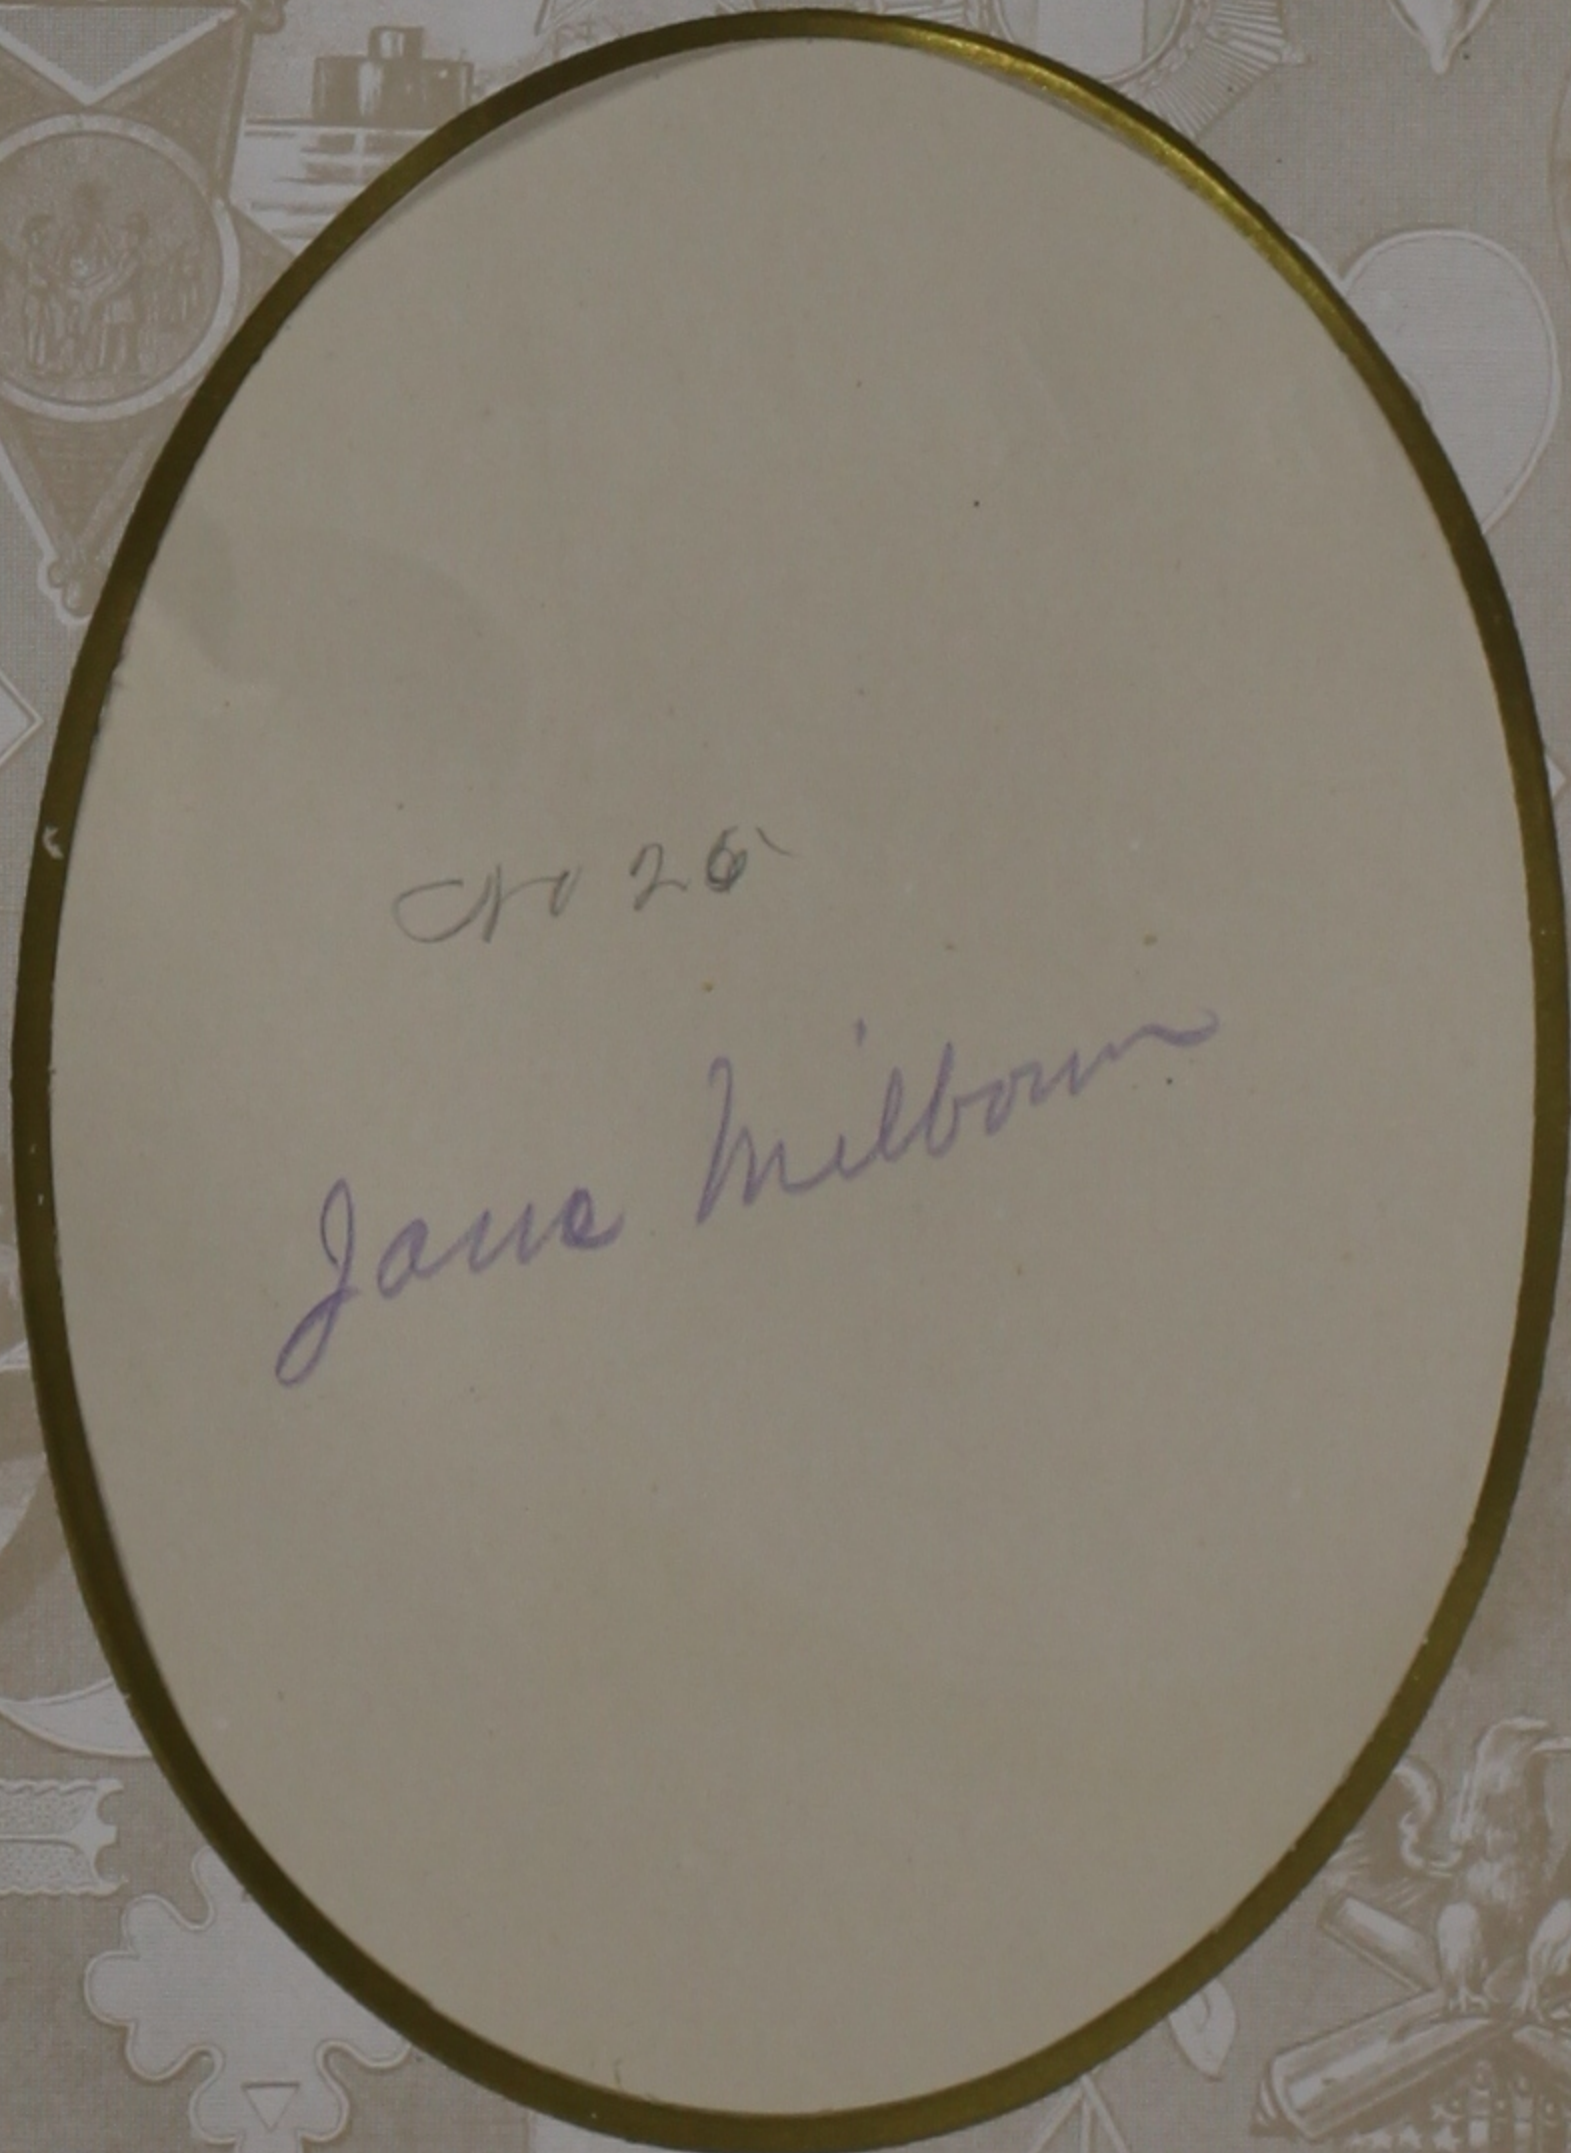 No 26
Jane Milbourn